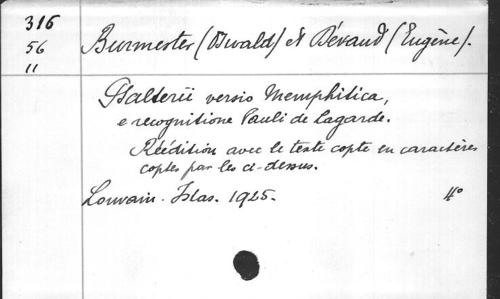 316
56
11
Burmester (Oswald) et Dévaud (Eugène).
Psalterii versio Memphitica,
e recognitione Pauli de Lagarde.
Réédition avec le texte copte en caractères
coptes par les ci-dessus.
Louvain. Istas. 1925. 4°